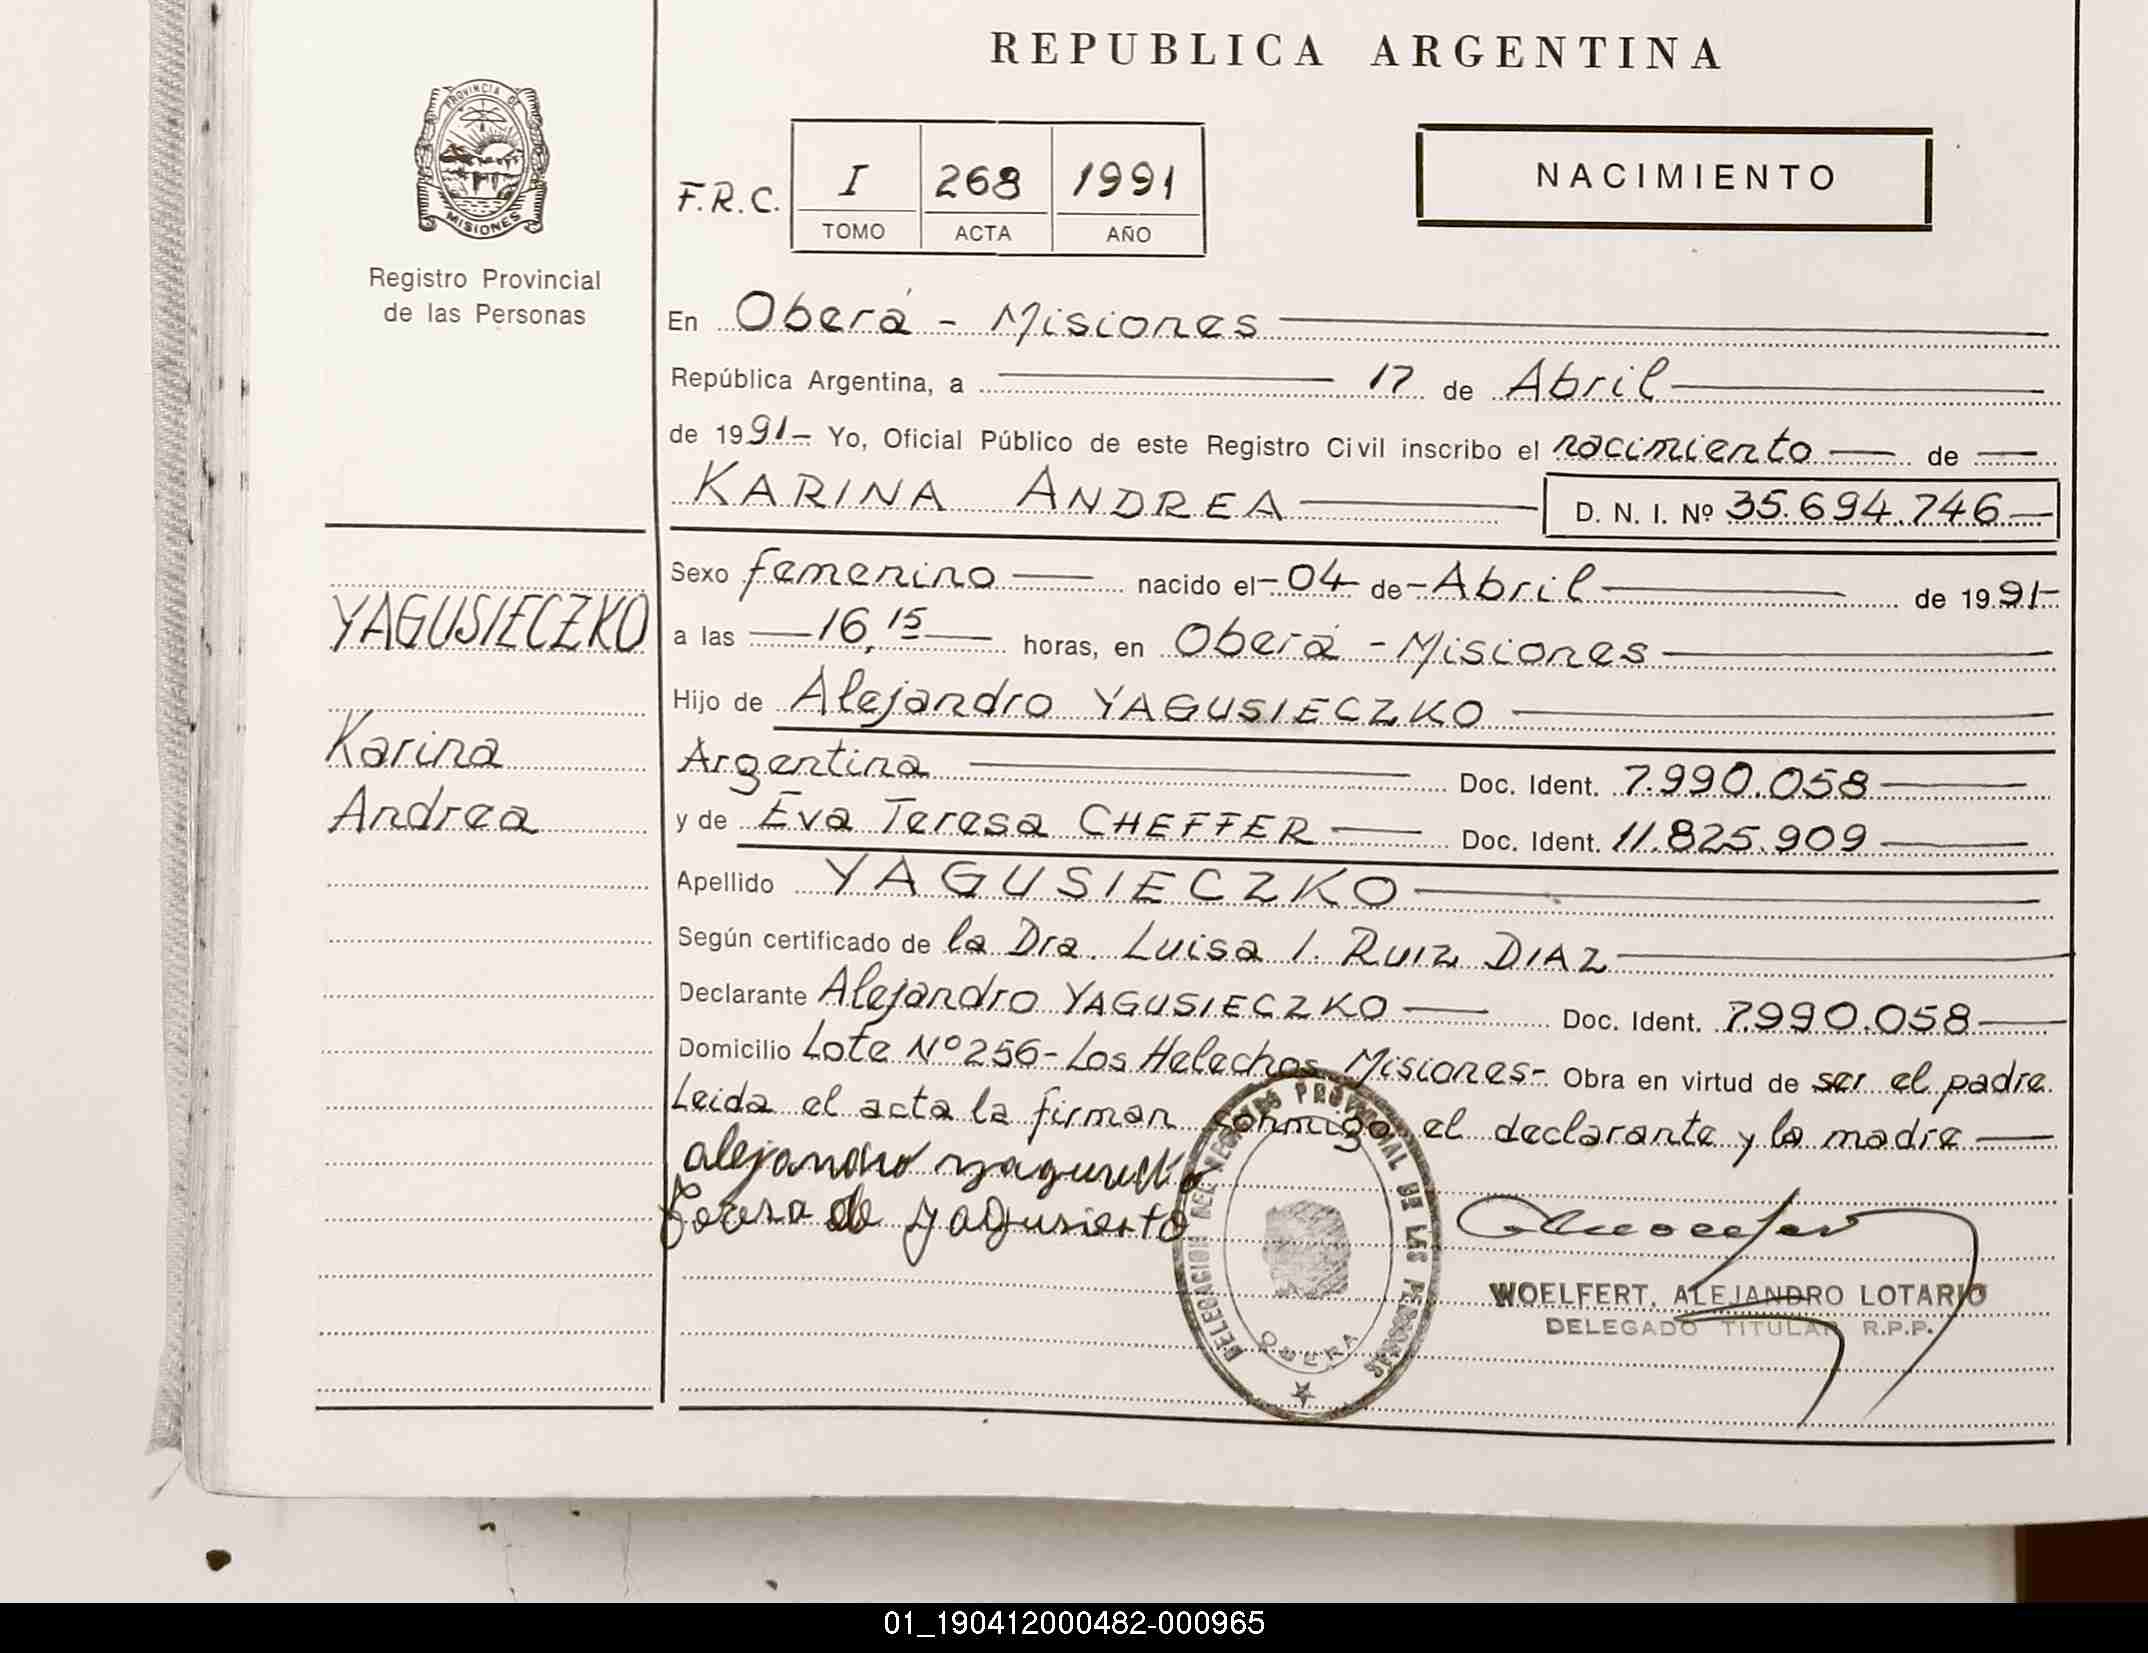 REPUBLICA ARGENTINA
PROVINCIA DE
MISIONES
Registro Provincial
de las Personas
F.R.C. I 268 1991
TOMO ACTA AÑO
NACIMIENTO
En Oberá - Misiones
República Argentina, a 17 de Abril
de 1991- Yo, Oficial Público de este Registro Civil inscribo el nacimiento de
KARINA ANDREA D. N. I. Nº 35.694.746
Sexo femenino nacido el 04 de Abril de 1991-
a las 16,15 horas, en Oberá - Misiones
Hijo de Alejandro YAGUSIECZKO
Argentina Doc. Ident. 7.990.058
y de Eva Teresa CHEFFER Doc. Ident. 11.825.909
Apellido YAGUSIECZKO
Según certificado de la Dra. Luisa I. RUIZ DIAZ
Declarante Alejandro YAGUSIECZKO Doc. Ident. 7.990.058
Domicilio Lote Nº 256 - Los Helechos Misiones - Obra en virtud de ser el padre.
Leida el acta la firman conmigo el declarante y la madre
YAGUSIECZKO
Karina
Andrea
alejandro
DELEGACION DEL REGISTRO PROVINCIAL DE LAS PERSONAS
OBERA
WOELFERT, ALEJANDRO LOTARIO
DELEGADO TITULAR R.P.P.
01_190412000482-000965